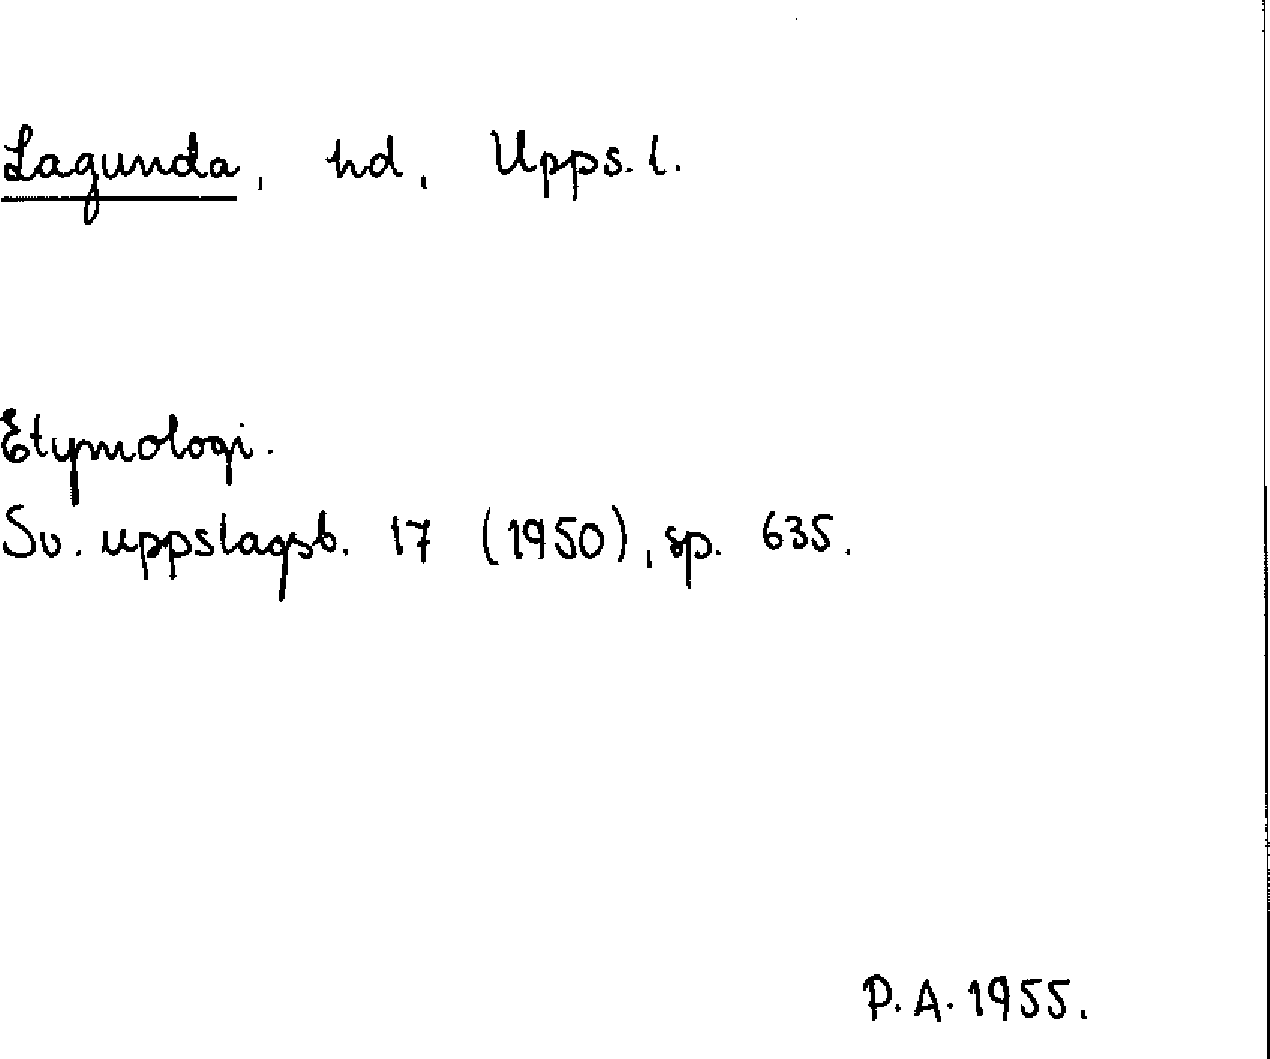 Lagunda, hd, Upps. l.
Etymologi.
Sv. uppslagsb. 17 (1950), sp. 635.
P. A. 1955.